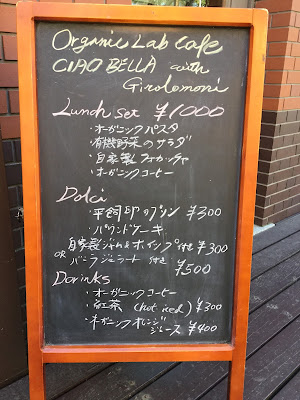 Organic Lab Cafe
CIAO BELLA with
Girolomoni
Lunch set ¥1000
・オーガニックパスタ
・有機野菜のサラダ
・自家製フォカッチャ
・オーガニックコーヒー
Dolci
・平飼卵のプリン ¥300
・パウンドケーキ
自家製ジャム&ホイップ付き ¥300
OR バニラジェラート付き
¥500
Dorinks
・オーガニックコーヒー
・紅茶 (hot iced) ¥300
・オーガニックオレンジ
ジュース ¥400